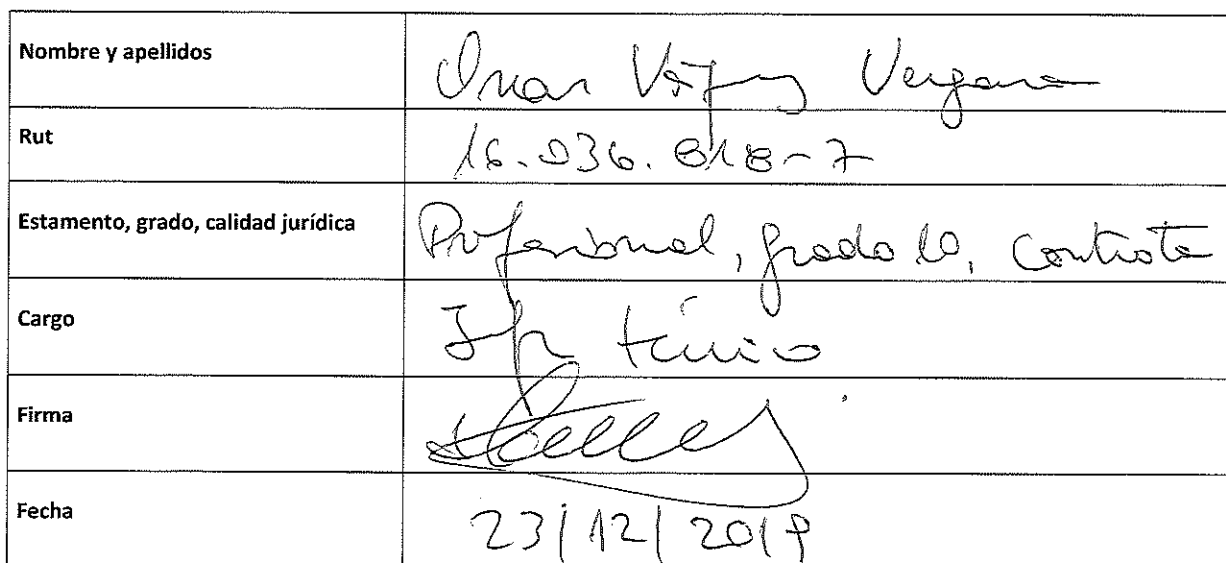 Nombre y apellidos
Omar Vásquez Vergara
Rut
16.036.818-7
Estamento, grado, calidad jurídica
Profesional, grado 10, contrata
Cargo
Jefe técnico
Firma
Fecha
23/12/2019